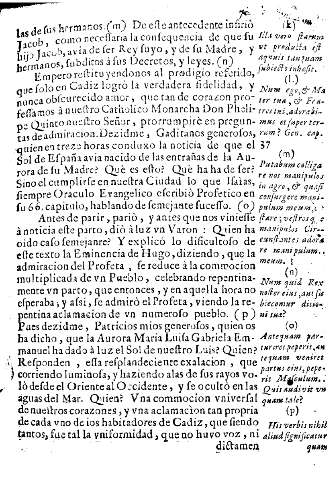 las de sus hermanos. (m) De este antecedente infirió
Jacob, como necessaria la consequencia de que su
hijo Jacob, avia de ser Rey suyo, y de su Madre, y
hermanos, subditos à sus Decretos, y leyes. (n)
Empero restituyendonos al prodigio referido,
que solo en Cadiz logrò la verdadera fidelidad, y
nunca obscurecido amor, que tan de corazon pro-
fessamos à nuestro Catholico Monarcha Don Pheli-
pe Quinto nuestro Señor, prorrumpirè en pregun-
tas de admiracion. Dezidme, Gaditanos generosos,
quien en treze horas conduxo la noticia de que el
Sol de España avia nacido de las entrañas de la Au-
rora de su Madre? Què es esto? Què ha de ser?
Sino el cumplirse en nuestra Ciudad lo que Isaias,
siempre Oraculo Evangelico escribiò Profetico en
su 66. capitulo, hablando de semejante sucesso. (o)
Antes de parir, pariò, y antes que nos viniesse
à noticia este parto, diò à luz vn Varon: Quien ha
oido caso semejante? Y explicò lo dificultoso de
este texto la Eminencia de Hugo, diziendo, que la
admiracion del Profeta, se reduce à la commocion
multiplicada de vn Pueblo, celebrando repentina-
mente vn parto, que entonces, y en aquella hora no
esperaba, y assi, se admirò el Profeta, viendo la re-
pentina aclamacion de vn numeroso pueblo. (p)
Pues dezidme, Patricios mios generosos, quien os
ha dicho, que la Aurora Maria Luisa Gabriela Em-
manuel ha dado à luz el Sol de nuestro Luis? Quien?
Responden, ella resplandeciente exalacion, que
corriendo luminosa, y haziendo alas de sus rayos vo-
lò desde el Oriente al Occidente, y se ocultò en las
aguas del Mar. Quien? Vna commocion vniversal
de nuestros corazones, y vna aclamacion tan propria
de cada vno de los habitadores de Cadiz, que siendo
tantos, fue tal la vniformidad, que no huvo voz, ni
dictamen
(k)
Illa vero
ut producta est
aquis tanquam
subiecta inhæsit.
(l)
Num ego, & Ma
ter tua, & Fra-
tres tui, adorabi-
mus te super ter-
ram? Gen. cap.
37
(m)
Putabam colliga
re nos manipulos
in agro, & quasi
consurgere mani-
pulum meum, &
stare; vestrosq; e
manipulos Cir-
cunstantes adora
re manipulum
meum.
(n)
Num quid Rex
noster eris, aut su
biecimur ditio-
ni tuæ?
(o)
Antequam par-
turiret, peperit, an
tequam veniret
partus eius, pepe-
rit Masculum.
Quis audivit vn
quam tale?
(p)
His verbis nihil
aliud significatur
quam